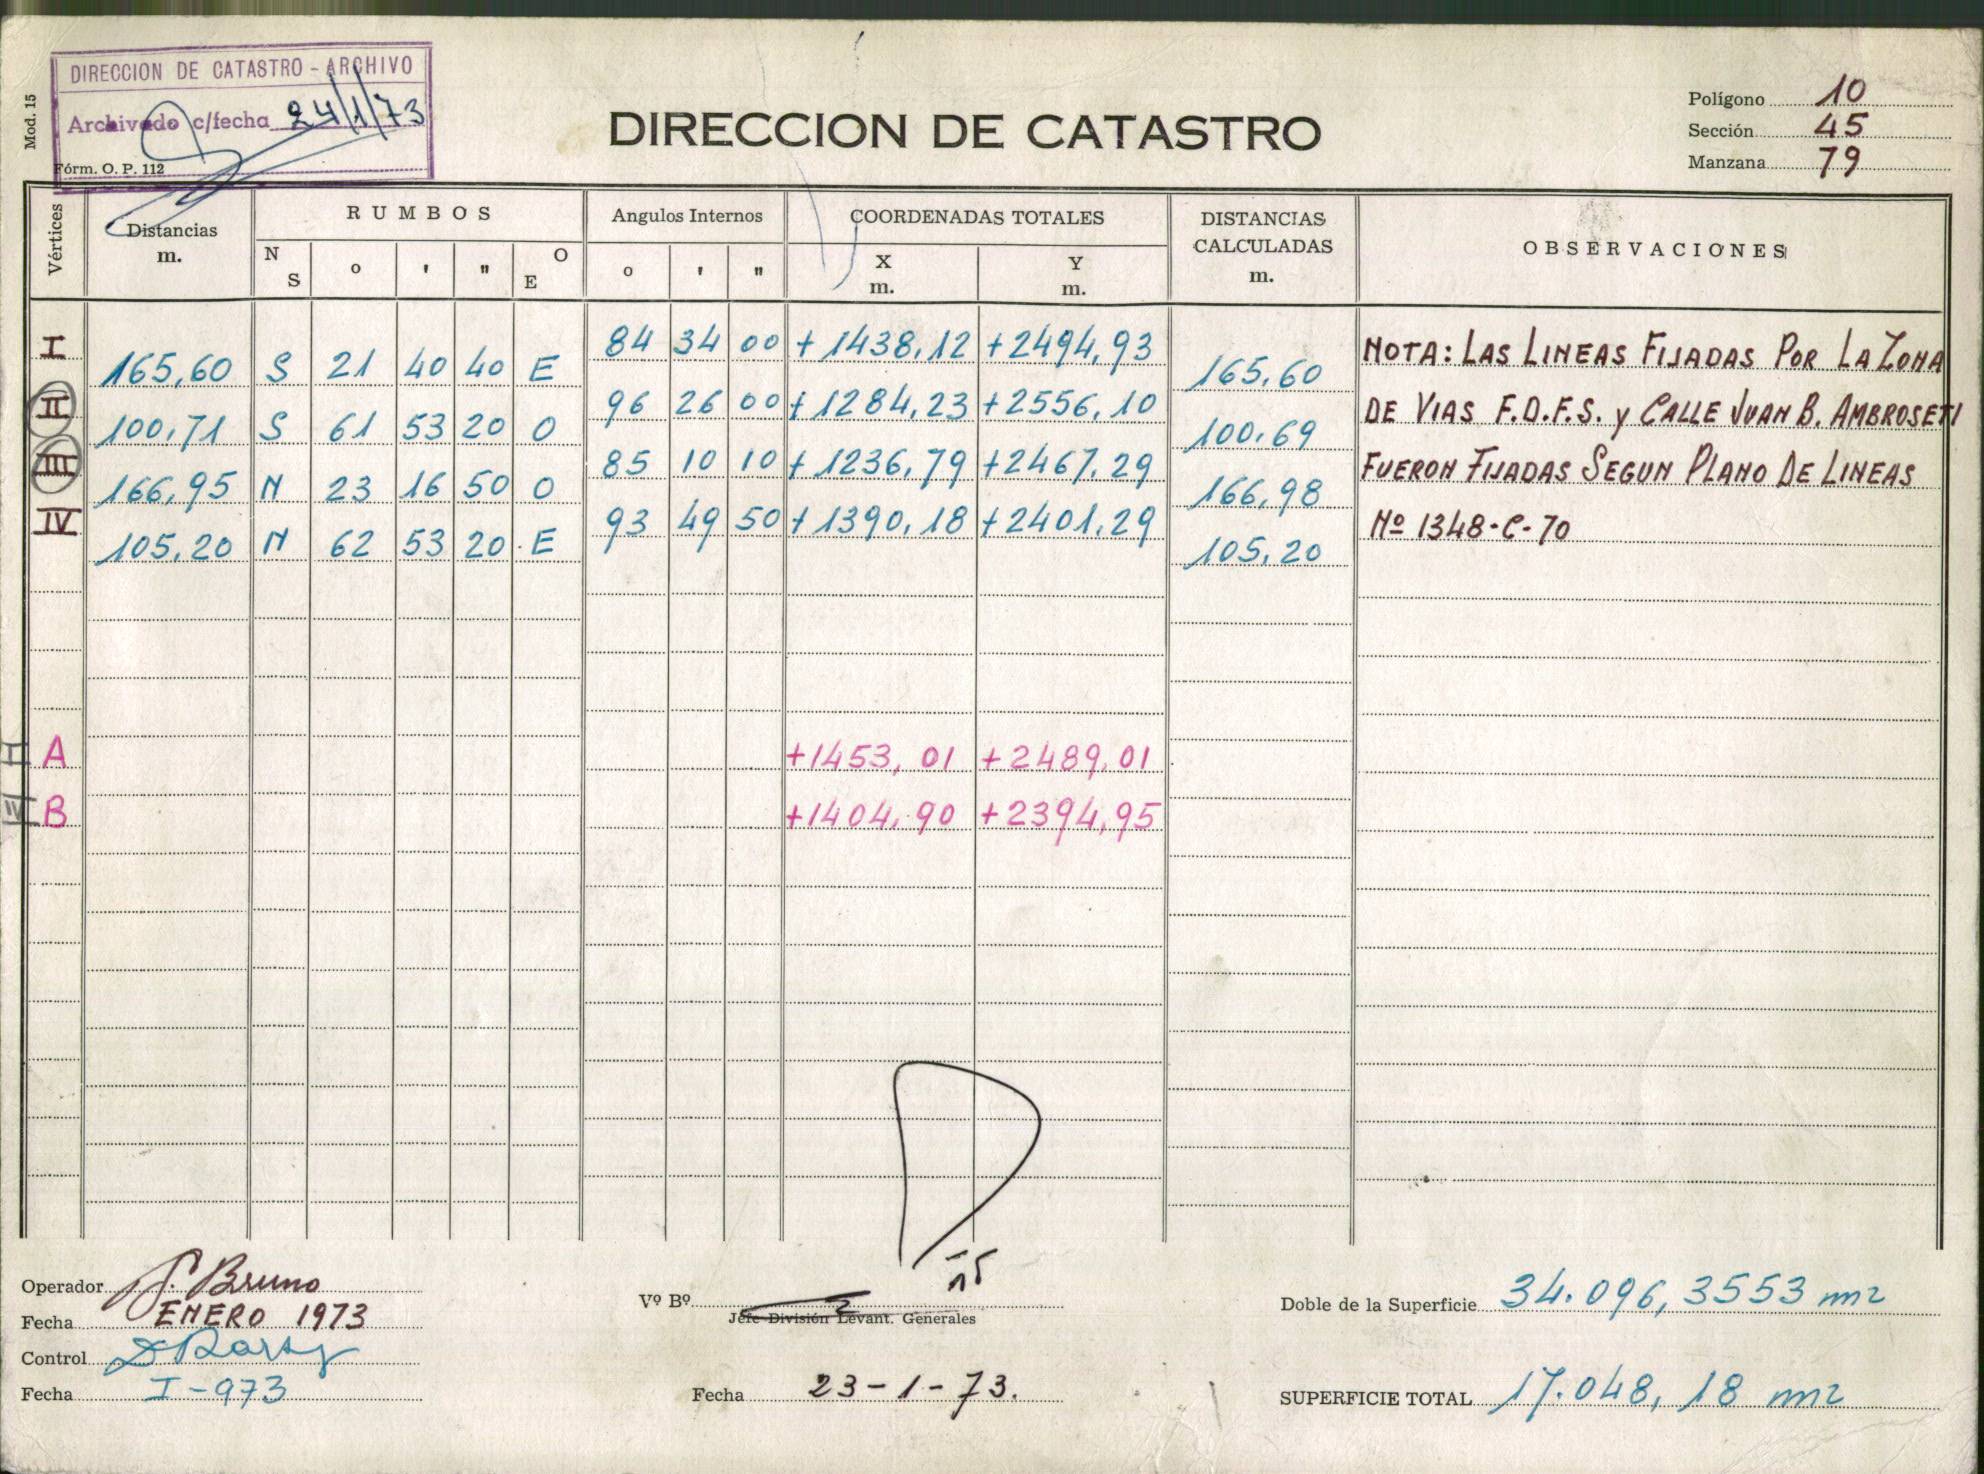 DIRECCION DE CATASTRO - ARCHIVO
Archivado c/fecha 24/1/73
Mod. 15
Fórm. O. P. 112
DIRECCION DE CATASTRO
Polígono 10
Sección 45
Manzana 79
Vértices
Distancias
m.
RUMBOS
N
S
o ' "
O
E
Angulos Internos
o ' "
COORDENADAS TOTALES
X
m.
Y
m.
DISTANCIAS
CALCULADAS
m.
OBSERVACIONES
I 84 34 00 +1438,12 +2494,93
165,60 S 21 40 40 E 165,60
II 96 26 00 +1284,23 +2556,10
100,71 S 61 53 20 O 100,69
III 85 10 10 +1236,79 +2467,29
166,95 N 23 16 50 O 166,98
IV 93 49 50 +1390,18 +2401,29
105,20 N 62 53 20 E 105,20
NOTA: LAS LINEAS FIJADAS POR LA ZONA
DE VIAS F.D.F.S. y CALLE JUAN B. AMBROSETI
FUERON FIJADAS SEGUN PLANO DE LINEAS
Nº 1348-C-70
I A +1453,01 +2489,01
IV B +1404,90 +2394,95
Operador Bruno
Fecha ENERO 1973
Control
Fecha I-973
Vº Bº
Jefe División Levant. Generales
Fecha 23-1-73.
Doble de la Superficie 34.096,3553 m2
SUPERFICIE TOTAL 17.048,18 m2